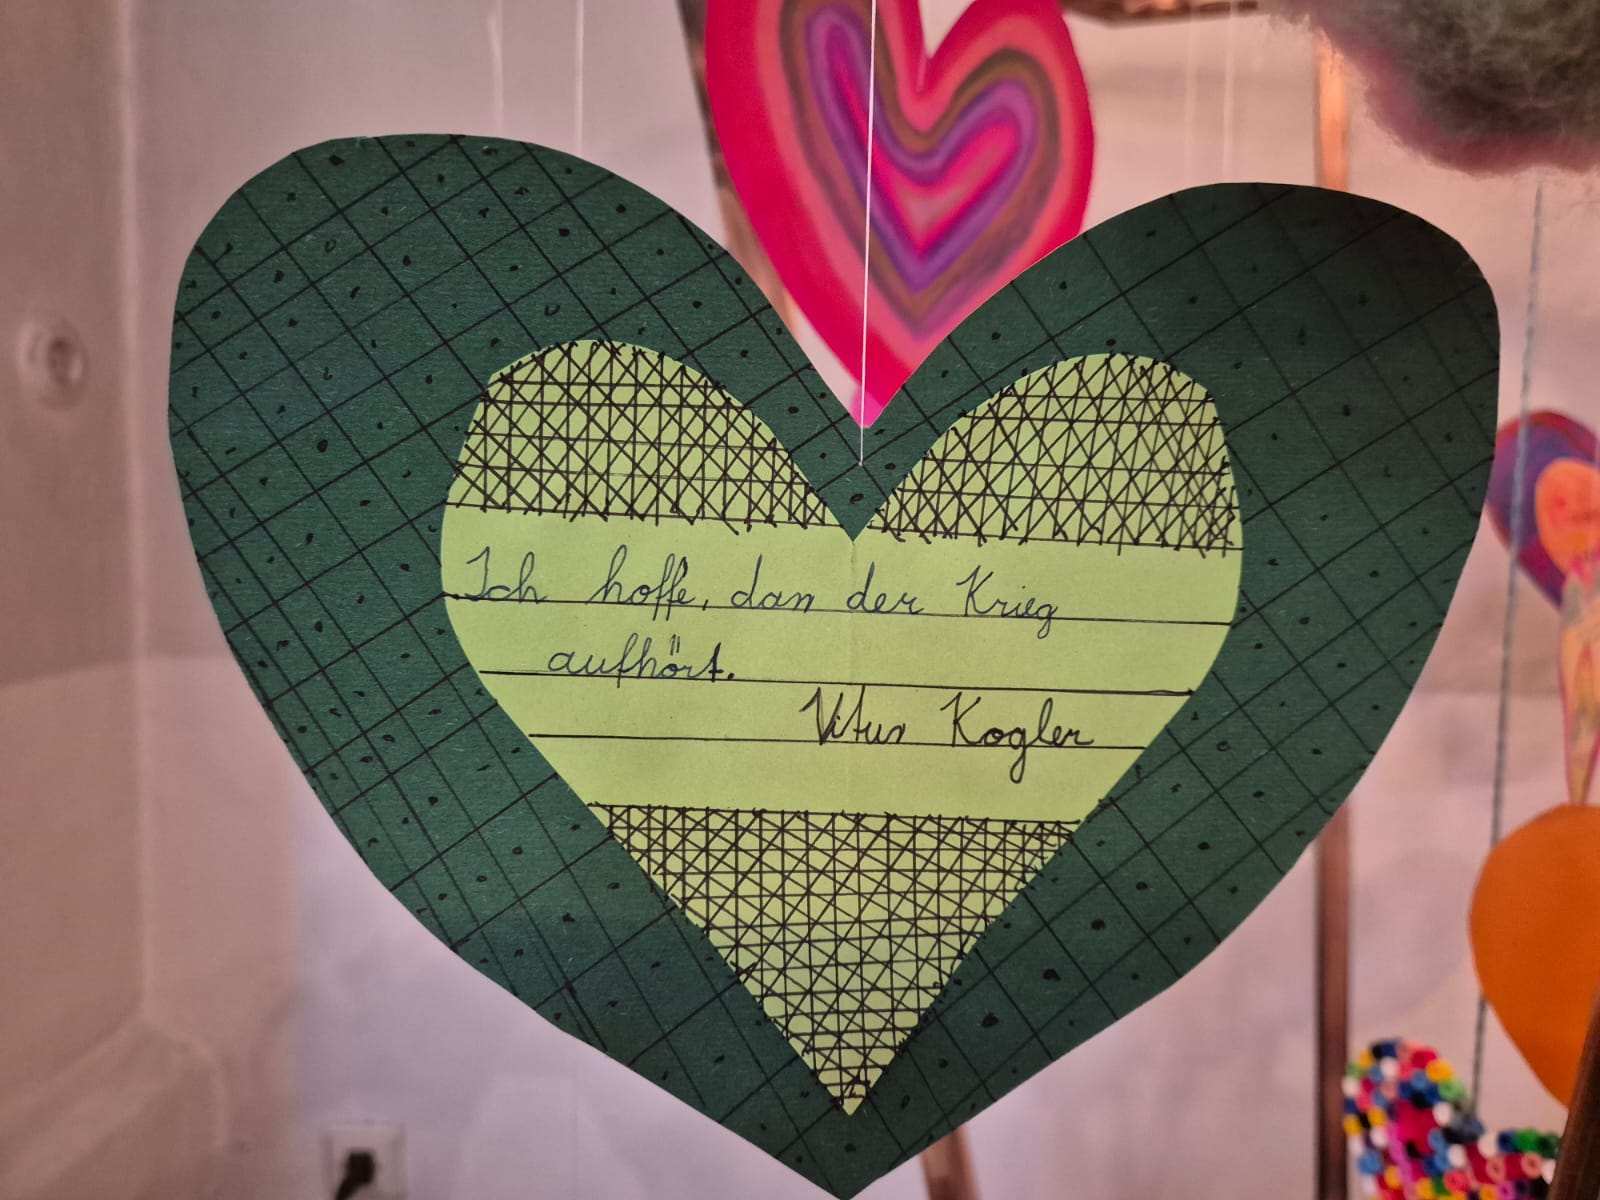 Ich hoffe, dass der Krieg
aufhört.
Vitus Kogler